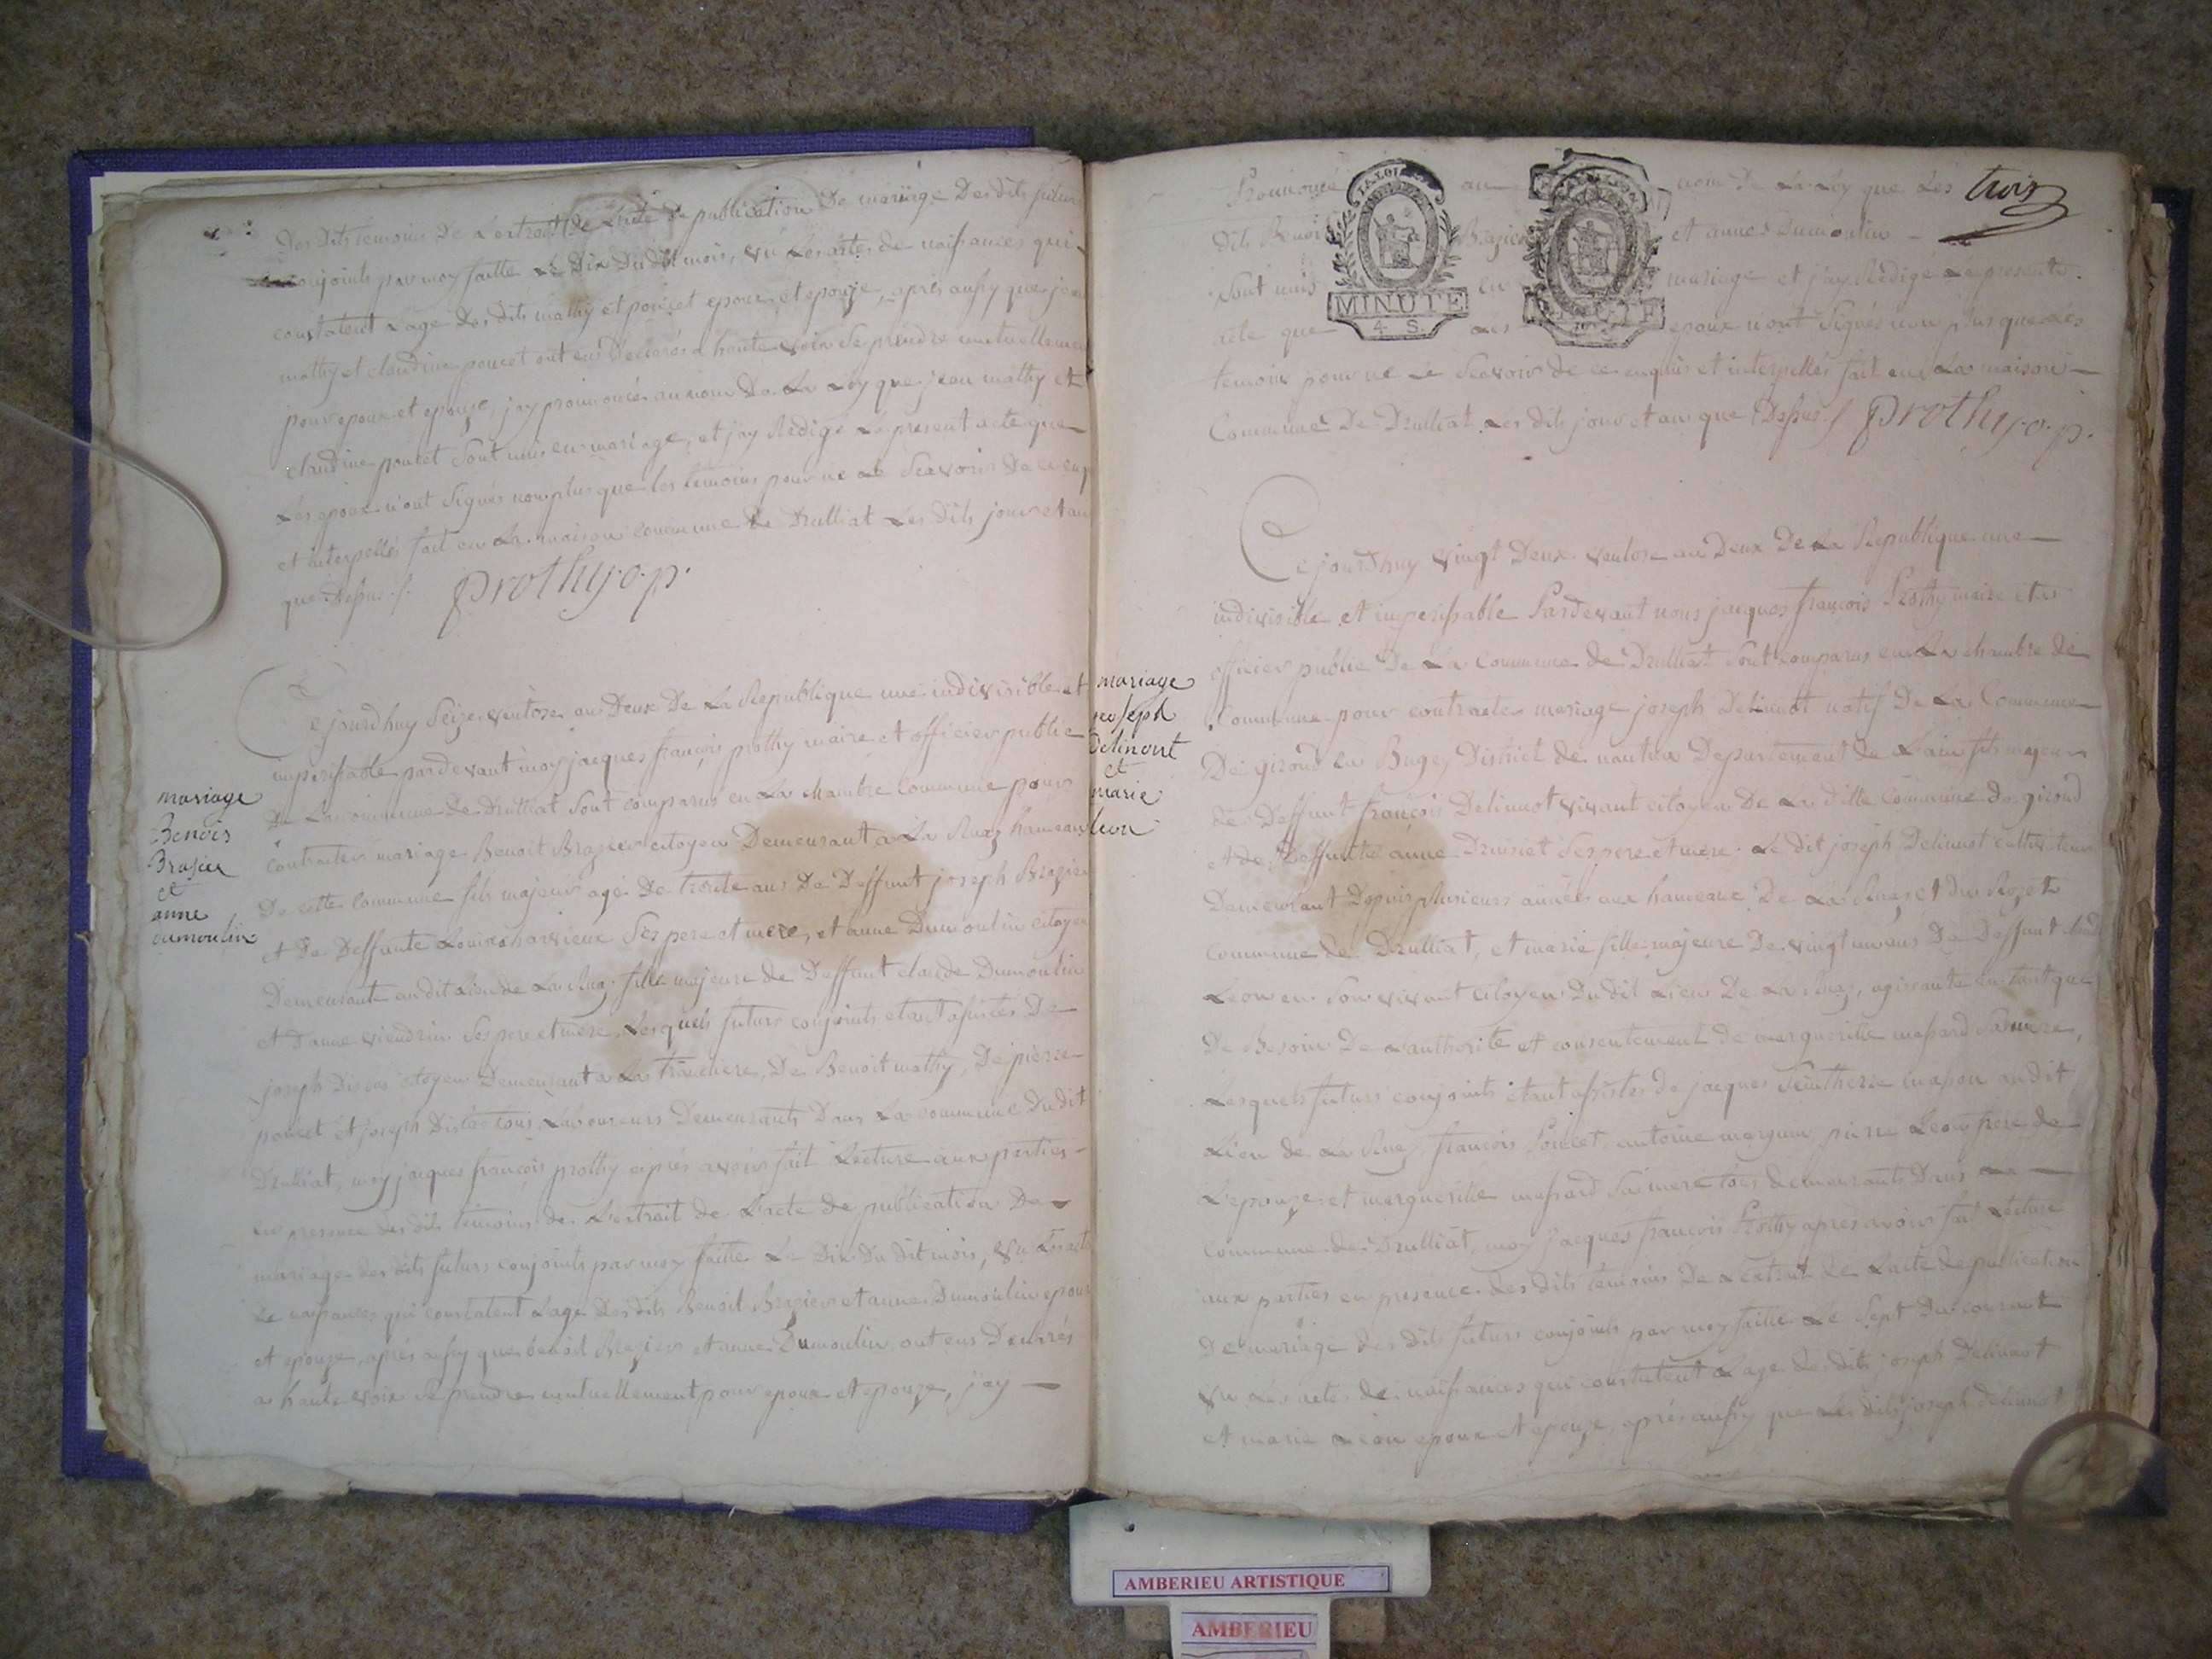 Des dits temoins de L'extrait de L'acte de publication De mariage Des dits futurs
conjoints par moy faitte Le Dix Du dit mois, vu Les actes de naissances qui
constatent L'age des dits mathy et poncet epoux et epouze, après aussy que jean
mathy et claudine poncet ont eus Declarés a haute voix se prendre mutuellement
pour epoux et epouze, j'ay prononcé au nom De La Loy que jean mathy et
claudine poncet sont unis en mariage, et j'ay Redigé Le present acte que
Les epoux n'ont signés non plus que les temoins pour ne Le scavoir De ce enq
et interpellés fait en La maison commune de Druilliat Les dits jour et an
que Dessus
prothy. o. p.
Ce jourd'huy seize ventose an Deux De La Republique une indivisible et
imperissable pardevant moy jacques françois prothy maire et officier public
De La commune de Druilliat sont comparus en La chambre Commune pour
contracter mariage Benoit Brazier citoyen Demeurant a La Ruaz hameau
De cette Commune fils majeur agé De trente ans De Deffunt joseph Brazier
et De Deffunte ses pere et mere, et anne Dumoulin citoyen
Demeurant audit Lieu de La Ruaz fille majeure de Deffunt claude Dumoulin
et D'anne ses pere et mere, Lesquels futurs conjoints etant assistés De
joseph citoyen Demeurant a La Tranchere, De Benoit mathy, De pierre
poncet et joseph tous Laboureurs Demeurants Dans La commune Du dit
Druilliat, moy jacques françois prothy après avoir fait Lecture aux parties
en presence des dits temoins de L'extrait de L'acte de publication De
mariage des dits futurs conjoints par moy faitte Le Dix Du dit mois, vu Les actes
de naissances qui constatent L'age Des dits Benoit Brazier et anne Dumoulin epoux
et epouze, après aussy que benoit Brazier et anne Dumoulin ont eus Declarés
a haute voix se prendre mutuellement pour epoux et epouze, j'ay
mariage
Benois
Brasier
et
anne
dumoulin
trois
Prononcé au nom De La Loy que Les
dits Benoit Brazier et anne Dumoulin
sont unis en mariage et j'ay Redigé Le present
acte que Les epoux n'ont signés non plus que Les
temoins pour ne Le scavoir de ce enquis et interpellés fait en La maison
Commune De Druilliat Les dits jour et an que Dessus prothy. o. p.
LA LOI
MINUTE
4. S.
MINUTE
Ce jourd'huy vingt Deux ventose an Deux De La Republique une
indivisible et imperissable Pardevant nous jacques françois Prothy maire et
officier public De La Commune de Druilliat sont comparus en La chambre de
Commune pour contracter mariage joseph Delinot natif De La Commune
De giroud en Bugey District de nantua Departement de L'ain fils majeur
de Deffunt françois Delinot vivant citoyen De La ditte Commune de giroud
et de Deffunte anne ses pere et mere. Le dit joseph Delinot cultivateur
Demeurant Depuis plusieurs années aux hameaux De La Ruaz et du
Commune de Druilliat, et marie fille majeure De vingt un ans De Deffunt
Leon en son vivant citoyen Dudit Lieu De La Ruaz, agissante en tant que
De Besoin De L'authorité et consentement de marguerite massard sa mere,
Lesquels futurs conjoints etant assistés de jacques maçon audit
Lieu de La Ruaz, françois Poncet, antoine pierre Leon frere de
L'epouze et marguerite massard sa mere tous demeurants Dans La
commune de Druilliat, moy jacques françois Prothy après avoir fait Lecture
aux parties en presence des dits temoins De L'extrait de L'acte de publication
De mariage des dits futurs conjoints par moy faitte Le sept Du courant
vu Les actes de naissances qui constatent L'age des dits joseph Delinot
et marie Leon epoux et epouze, après aussy que Les dits joseph delinot
mariage
joseph
Delinout
et
marie
leon
AMBERIEU ARTISTIQUE
AMBERIEU